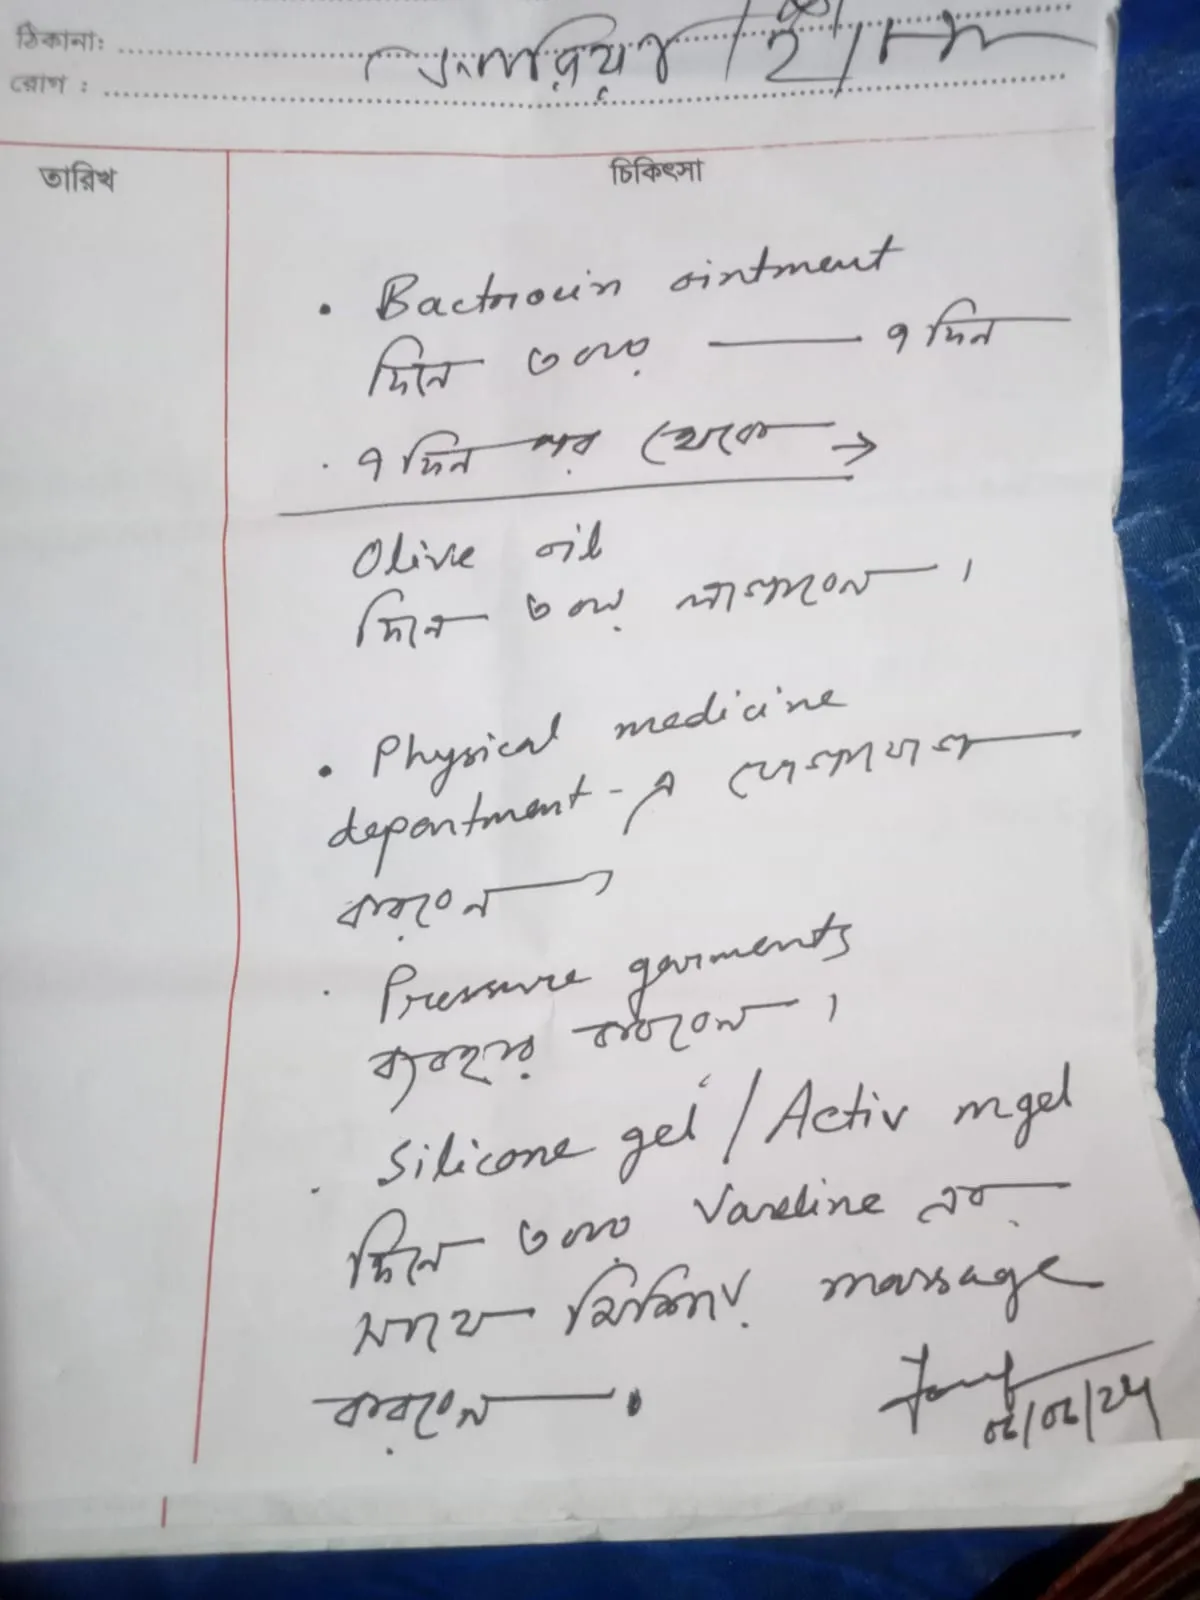 ঠিকানা:
রোগ :
তারিখ
চিকিৎসা
• Bactrocin ointment
দিনে ৩ বার — ৭ দিন
· ৭ দিন পর থেকে →
Olive oil
দিনে ৩ বার লাগাবেন ।
• Physical medicine
department - এ যোগাযোগ
করবেন
· Pressure garments
ব্যবহার করবেন ।
· Silicone gel / Activ mgel
দিনে ৩ বার Vaseline এর
সাথে মিশিয়ে massage
করবেন ।
06/06/24